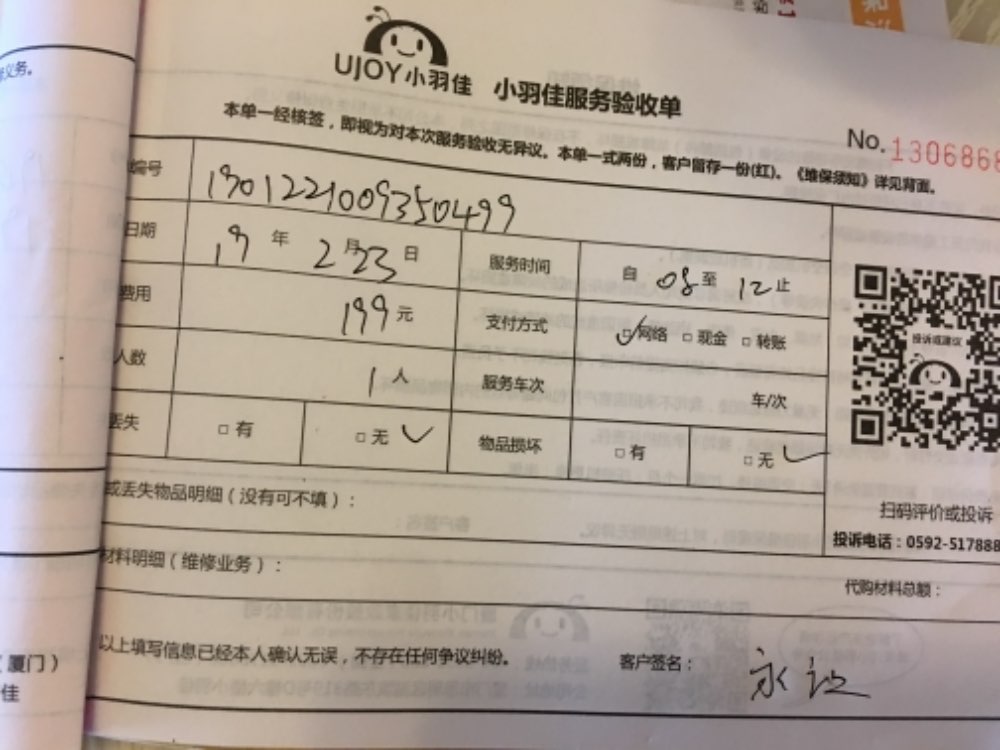 UJOY小羽佳 小羽佳服务验收单
本单一经核签，即视为对本次服务验收无异议。本单一式两份，客户留存一份(红)。《维保须知》详见背面。
No. 1306868
编号 1901221009350499
日期 19年2月23日 服务时间 自08至12止
费用 199元 支付方式 □网络 □现金 □转账
人数 1人 服务车次 车/次
丢失 □有 □无 物品损坏 □有 □无
投诉或建议
扫码评价或投诉
投诉电话：0592-517888
或丢失物品明细（没有可不填）：
材料明细（维修业务）：
代购材料总额：
以上填写信息已经本人确认无误，不存在任何争议纠纷。
客户签名：
义务。
（厦门）
佳